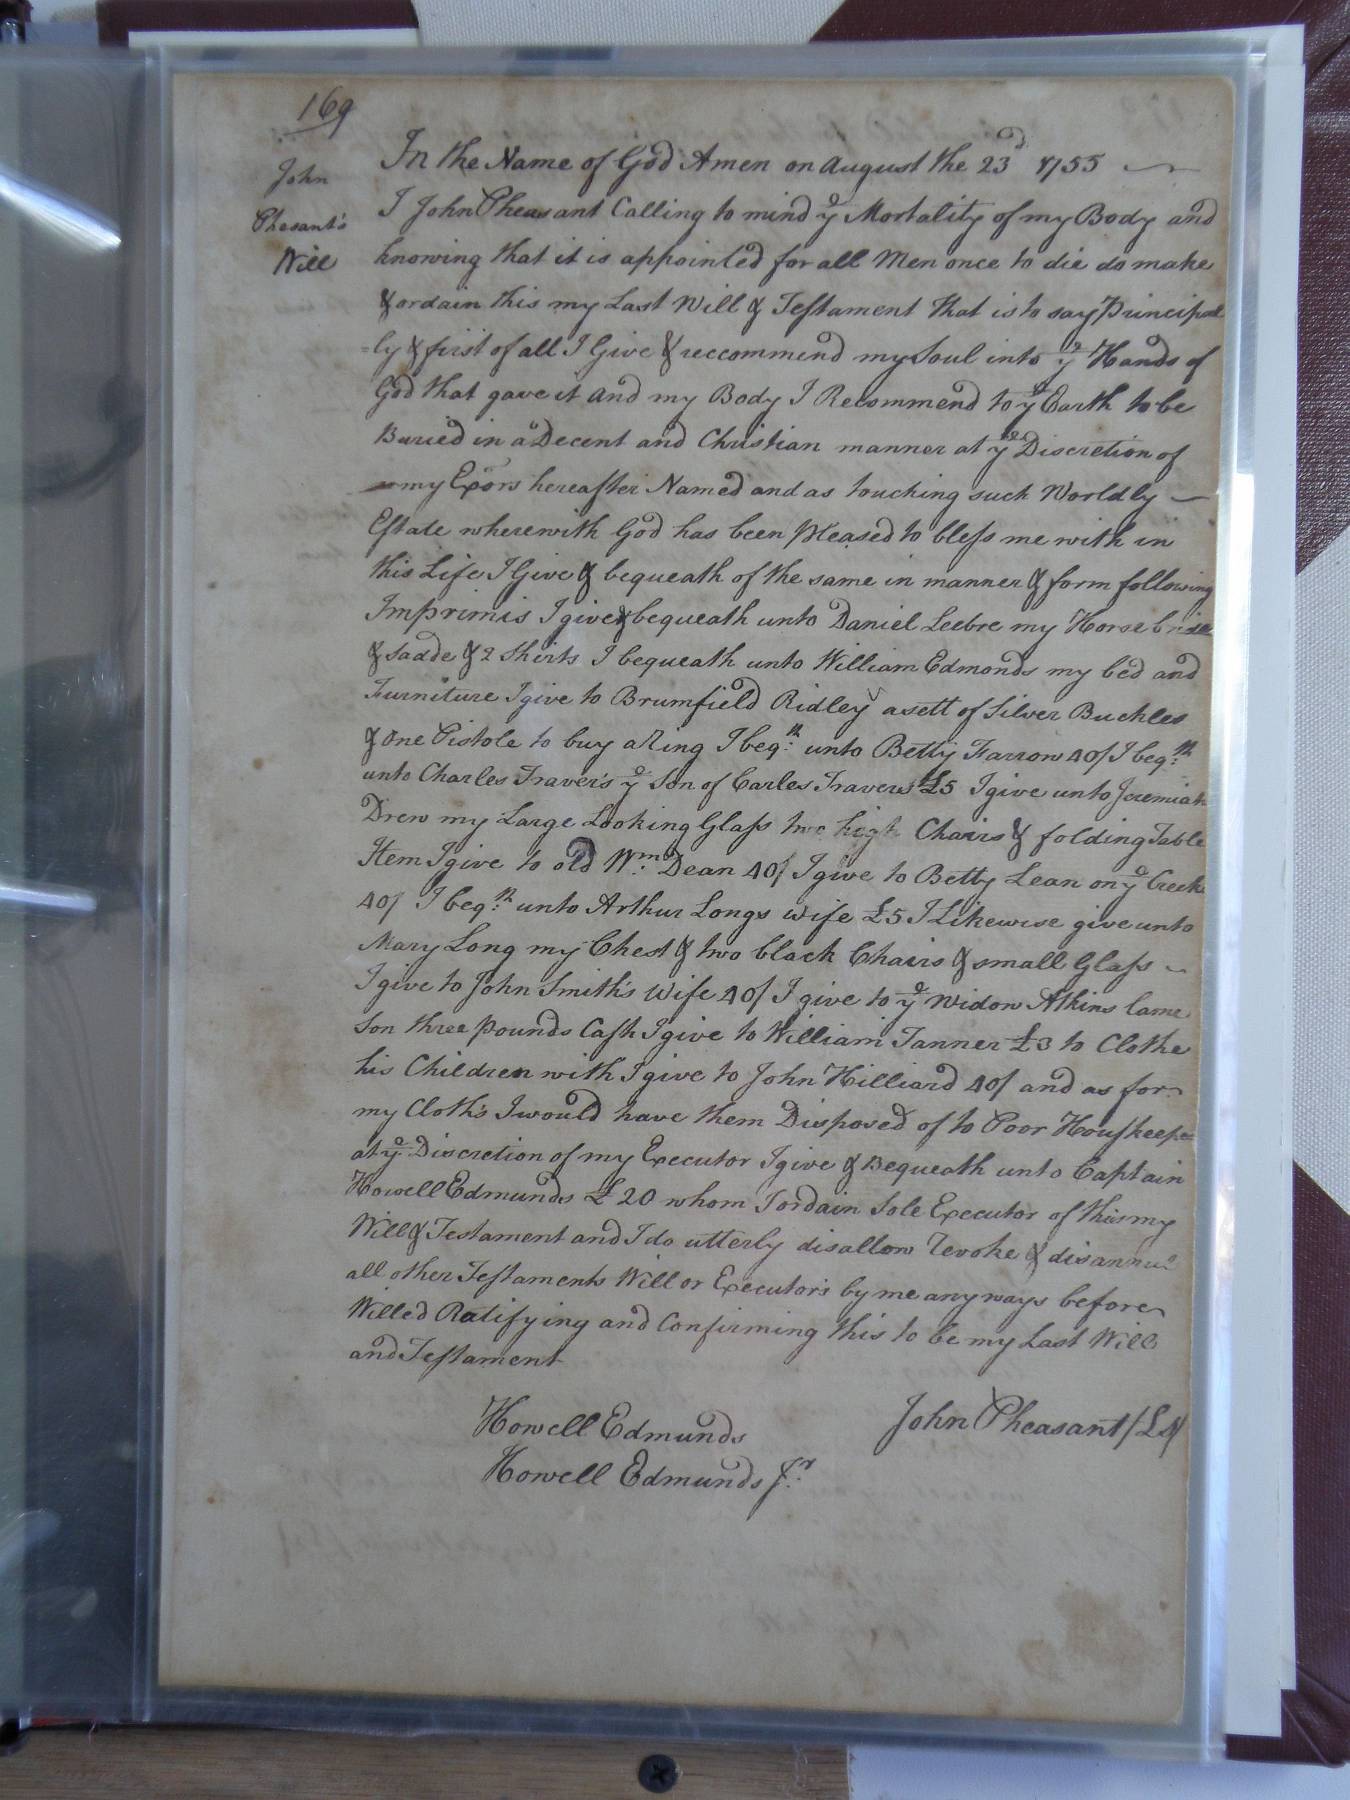 169
John
Phesant's
Will
In the Name of God Amen on August the 23d 1755
I John Pheasant Calling to mind ye Mortality of my Body and
knowing that it is appointed for all Men once to die do make
& ordain this my Last Will & Testament that is to say Principal
=ly & first of all I Give & reccommend my Soul into ye Hands of
God that gave it and my Body I Recommend to ye Earth to be
Buried in a Decent and Christian manner at ye Discretion of
my Exors hereafter Named and as touching such Worldly
Estate wherewith God has been pleased to bless me with in
this Life I Give & bequeath of the same in manner & form following
Imprimis I give & bequeath unto Daniel Leebre my Horse bridle
& Sadde & 2 Shirts I bequeath unto William Edmonds my bed and
Furniture I give to Brumfield Ridley a sett of Silver Buckles
& one Pistole to buy a Ring I beqth unto Betty Farrow 40/ I beqth
unto Charles Traver's ye Son of Carles Travers £5 I give unto Jeremiah
Drew my Large Looking Glass two high Chairs & folding Table
Item I give to old Wm Dean 40/ I give to Betty Lean on ye Creek
40/ I beqth unto Arthur Longs wife £5 I Likewise give unto
Mary Long my Chest & two black Chairs & small Glass
I give to John Smith's Wife 40/ I give to ye Widow Atkins lame
Son three pounds Cash I give to William Tanner £3 to Clothe
his Children with I give to John Hilliard 40/ and as for
my Cloths I would have them Disposed of to Poor Houskeeper
at ye Discretion of my Executor I give & Bequeath unto Captain
Howell Edmunds £20 whom I ordain Sole Executor of this my
Will & Testament and I do utterly disallow revoke & disannul
all other Testaments Will or Executors by me any ways before
Willed Ratifying and Confirming this to be my Last Will
and Testament
Howell Edmunds
John Pheasant (LS)
Howell Edmunds Jr